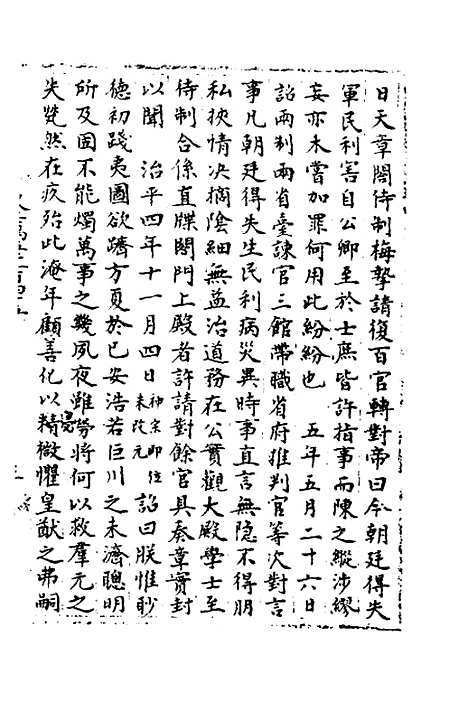 日天章閣待制梅摯請復百官轉對帝曰今朝廷得失
軍民利害自公卿至於士庶皆許指事而陳之縱涉繆
妄亦未嘗加罪何用此紛紛也　五年五月二十六日
詔兩制兩省臺諫官三館帶職省府推判官等次對言
事凡朝廷得失生民利病災異時事直言無隱不得朋
私挾情决摘陰細無益治道務在公實觀大殿學士至
待制合係直牒閤門上殿者許請對餘官具奏章實封
以聞　治平四年十一月四日神宗即位未改元詔曰朕惟眇
德初踐夷圖欲躋方夏於已安浩若巨川之未濟聰明
所及固不能燭萬事之幾夙夜雖勞將何以救羣元之
失煢然在疚殆此淹年顧善化以精微懼皇猷之弗嗣